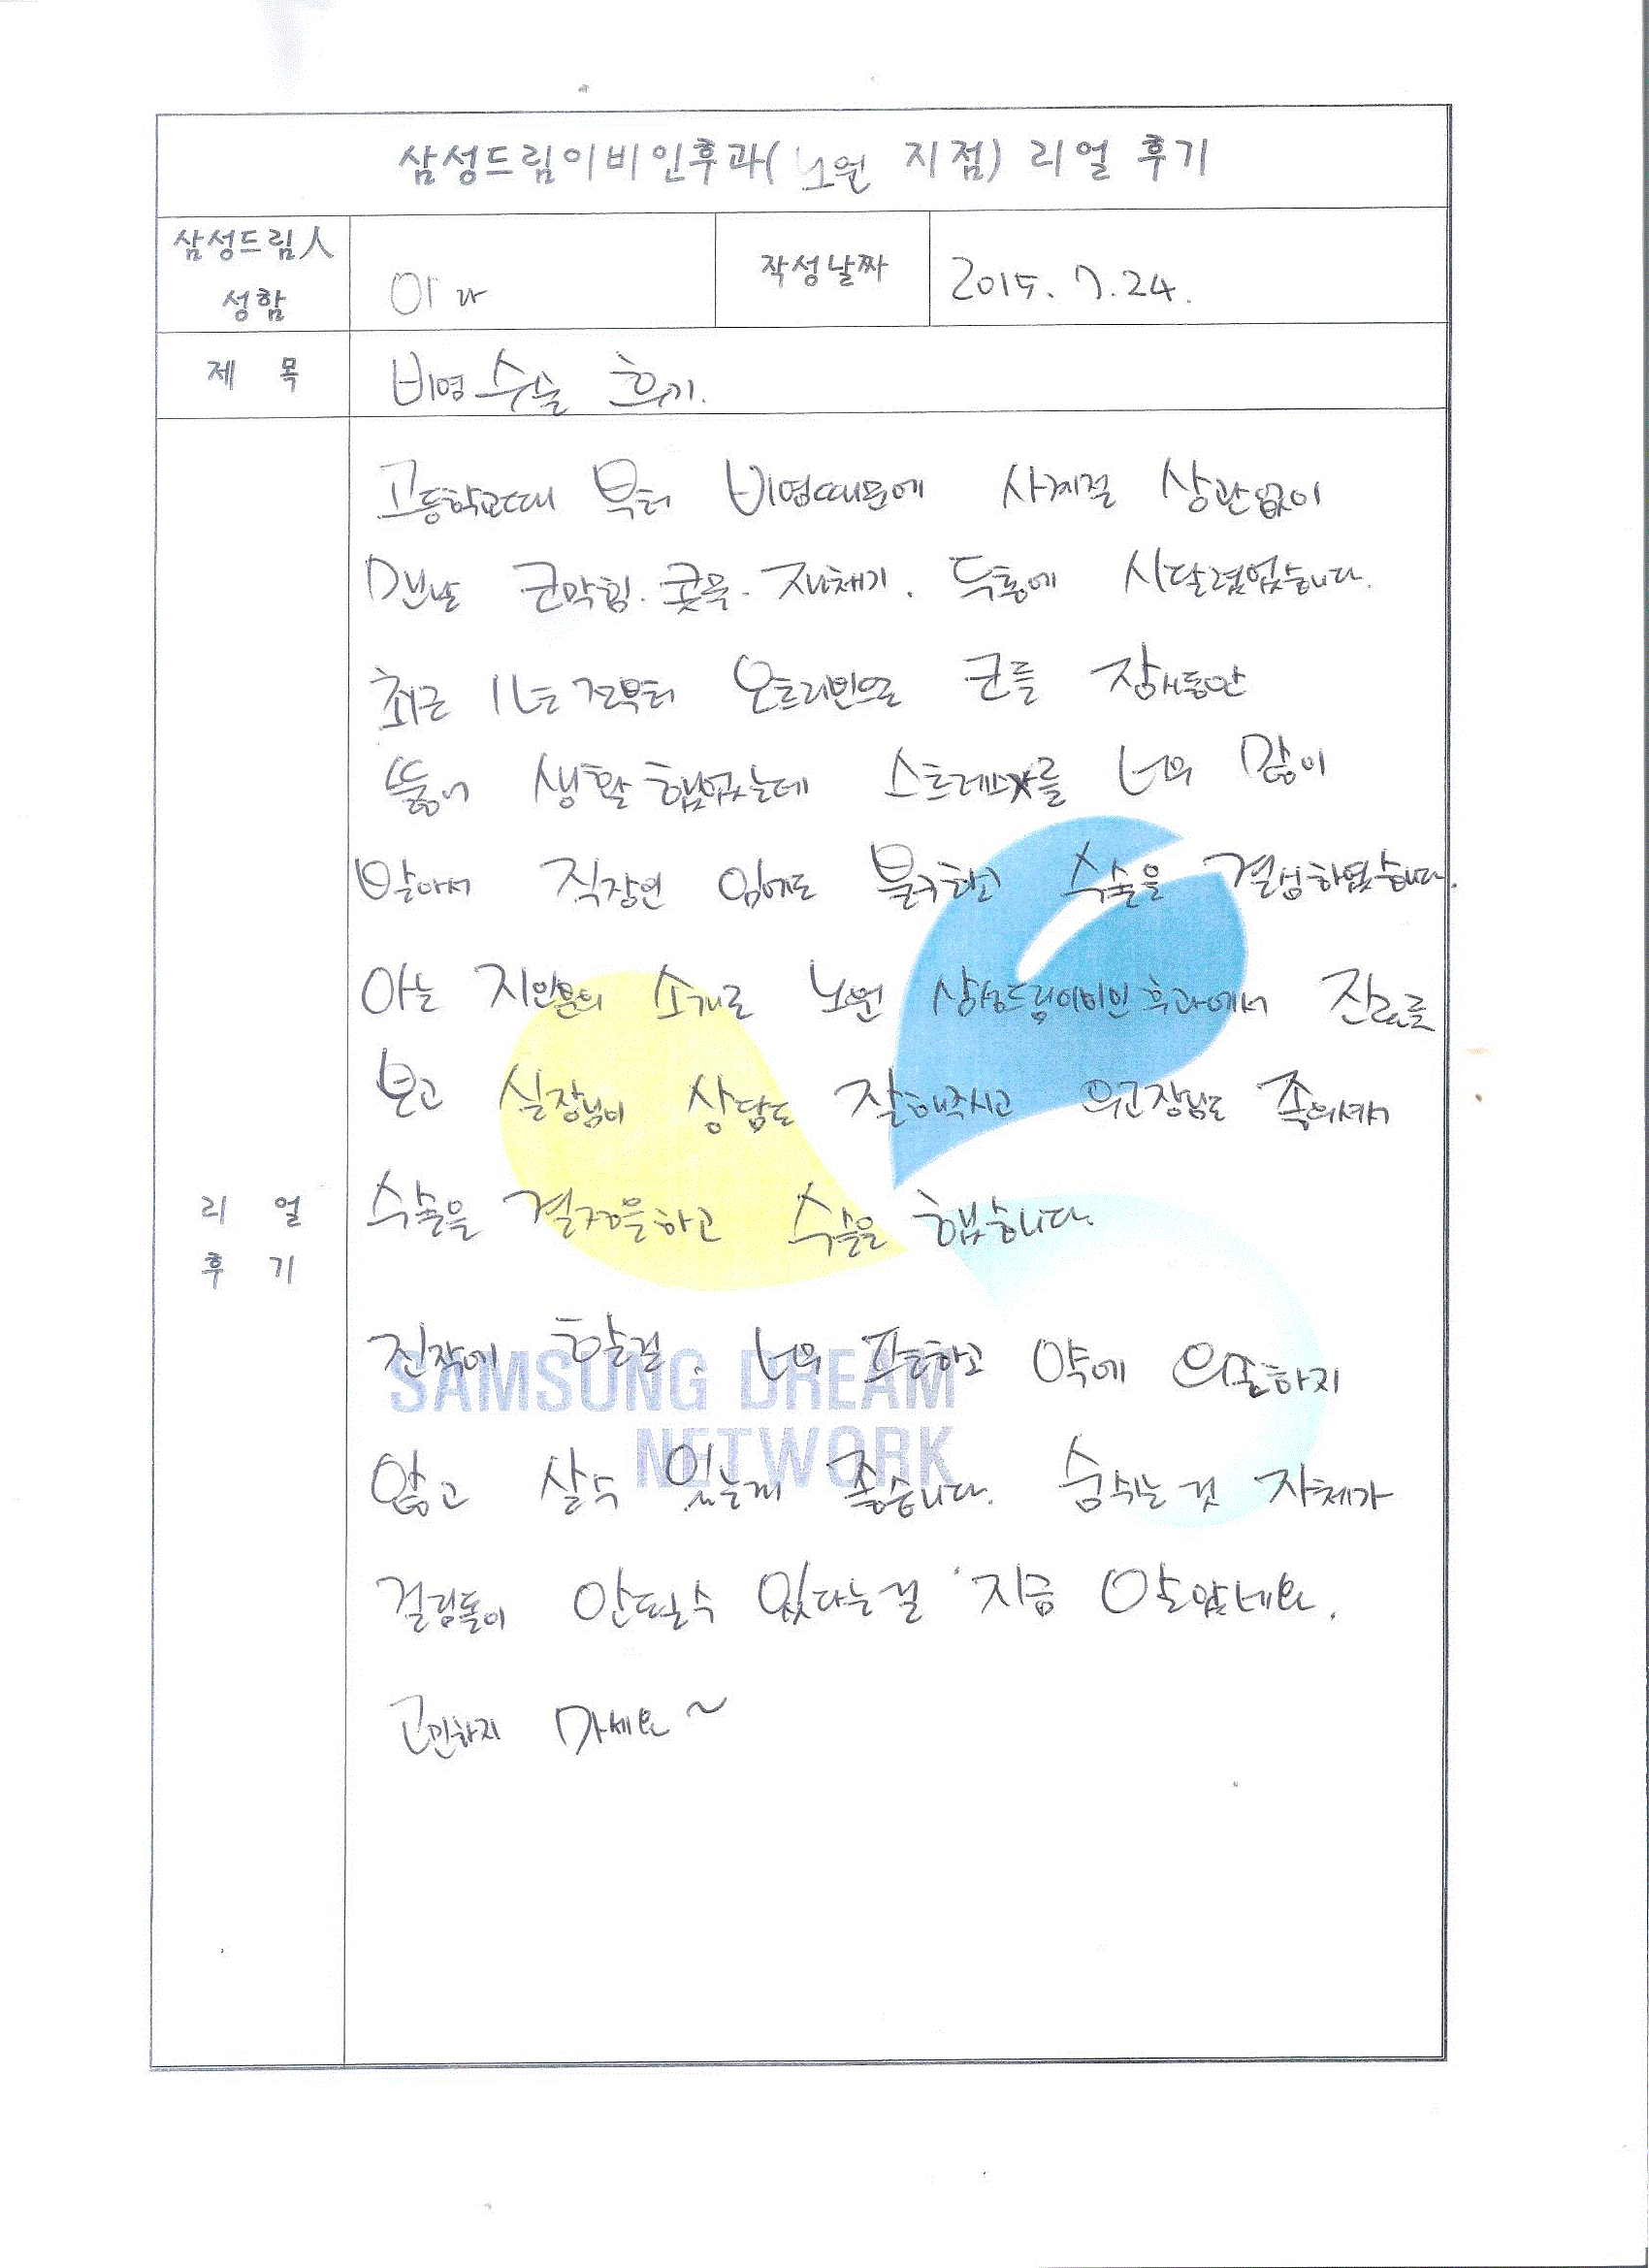 삼성드림이비인후과( 노원 지점) 리얼 후기
삼성드림人
성함
이 라
작성날짜
2015. 7. 24.
제 목
비염수술 후기.
고등학교때 부터 비염때문에 사계절 상관없이
맨날 코막힘. 콧물. 재채기. 두통에 시달렸었습니다.
최근 1년 전부터 오트리빈으로 코를 잠시동안
뚫어 생활 했었는데 스트레스를 너무 많이
받아서 직장인 임에도 불구하고 수술을 결심하였습니다.
아는 지인분의 소개로 노원 삼성드림이비인후과에서 진료를
보고 실장님이 상담도 잘해주시고 원장님도 좋으셔서
수술을 결정을하고 수술을 했습니다.
진작에 할걸. 너무 편하고 약에 의존하지
않고 살수 있는게 좋습니다. 숨쉬는 것 자체가
걸림돌이 안될수 있다는걸 지금 알았네요.
고민하지 마세요~
리 얼
후 기
SAMSUNG DREAM
NETWORK